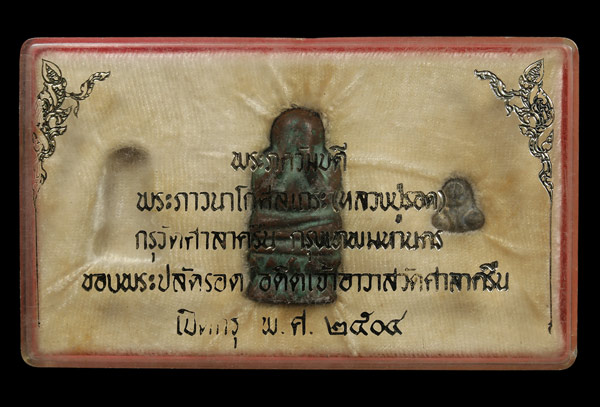 พระภควัมบดี
พระภาวนาโกศลเถระ (หลวงปู่รอด)
กรุวัดศาลาครืน กรุงเทพมหานคร
ของพระปลัดรอด อดีตเจ้าอาวาสวัดศาลาครืน
เปิดกรุ พ.ศ. ๒๕๐๔